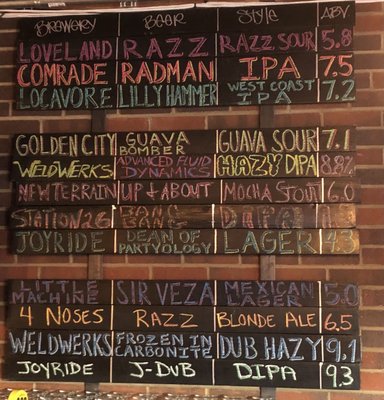 BREWERY BEER STYLE ABV
LOVELAND RAZZ RAZZ SOUR 5.8
COMRADE RADMAN IPA 7.5
LOCAVORE LILLY HAMMER WEST COAST IPA 7.2
GOLDEN CITY GUAVA BOMBER GUAVA SOUR 7.1
WELDWERKS ADVANCED FLUID DYNAMICS HAZY DIPA
NEW TERRAIN UP & ABOUT MOCHA STOUT 6.0
STATION 26 DIPA
JOYRIDE DEAN OF PARTYOLOGY LAGER 4.3
LITTLE MACHINE SIR VEZA MEXICAN LAGER 5.0
4 NOSES RAZZ BLONDE ALE 6.5
WELDWERKS FROZEN IN CARBONITE DUB HAZY 9.1
JOYRIDE J-DUB DIPA 9.3